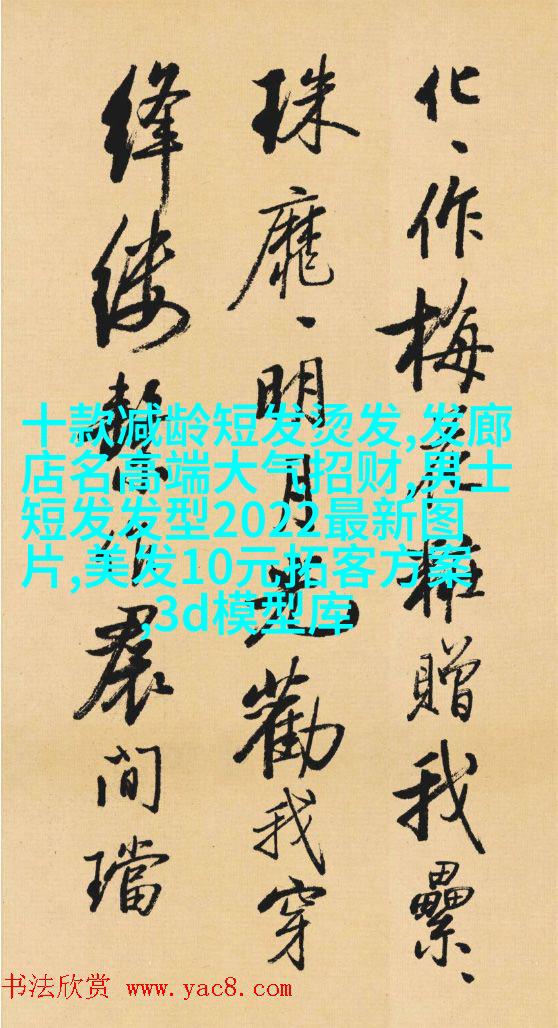 化、作梅花糚贈我纍、
珠靡、明月勸我穿
絳縷繫作裠间璫
十款减龄短发烫发,发廊
店名高端大气招财,男士
短发发型2022最新图
片,美发10元拓客方案
,3d模型库
书法欣赏 www.yac8.com